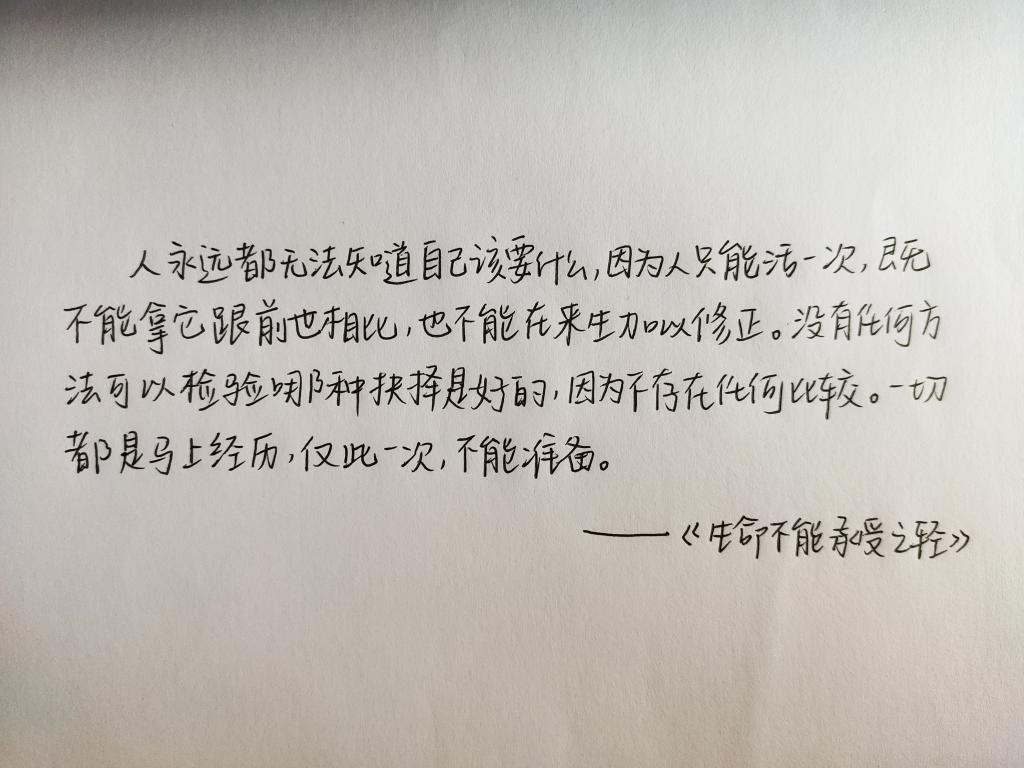 人永远都无法知道自己该要什么,因为人只能活一次,既无
不能拿它跟前世相比,也不能在来生加以修正。没有任何方
法可以检验哪种抉择是好的,因为不存在任何比较。一切
都是马上经历,仅此一次,不能准备。
——《生命不能承受之轻》